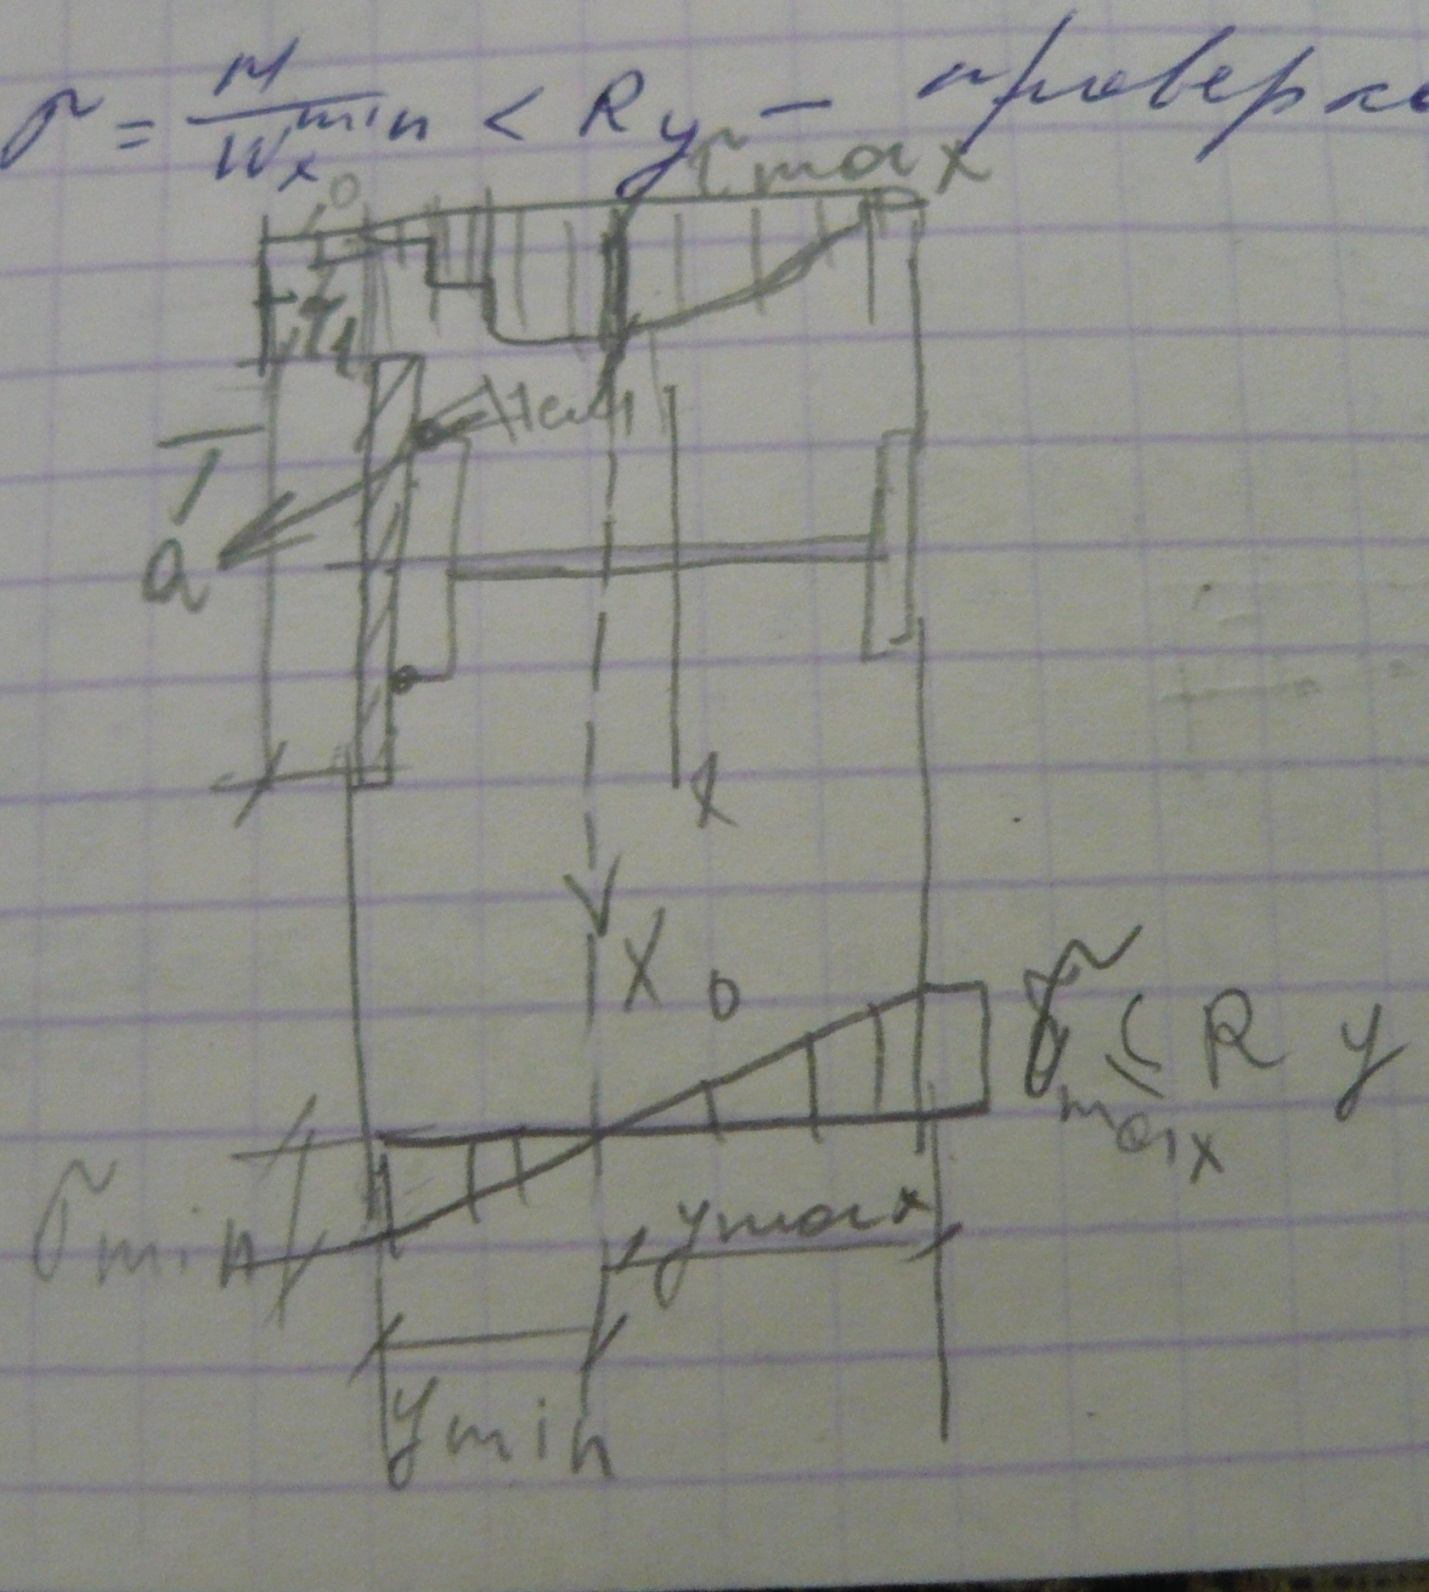 σ = M / Wₓmin < Ry – проверка
τmax
τ₁
a
x
X₀
σmax ≤ Ry
σmin
ymax
ymin